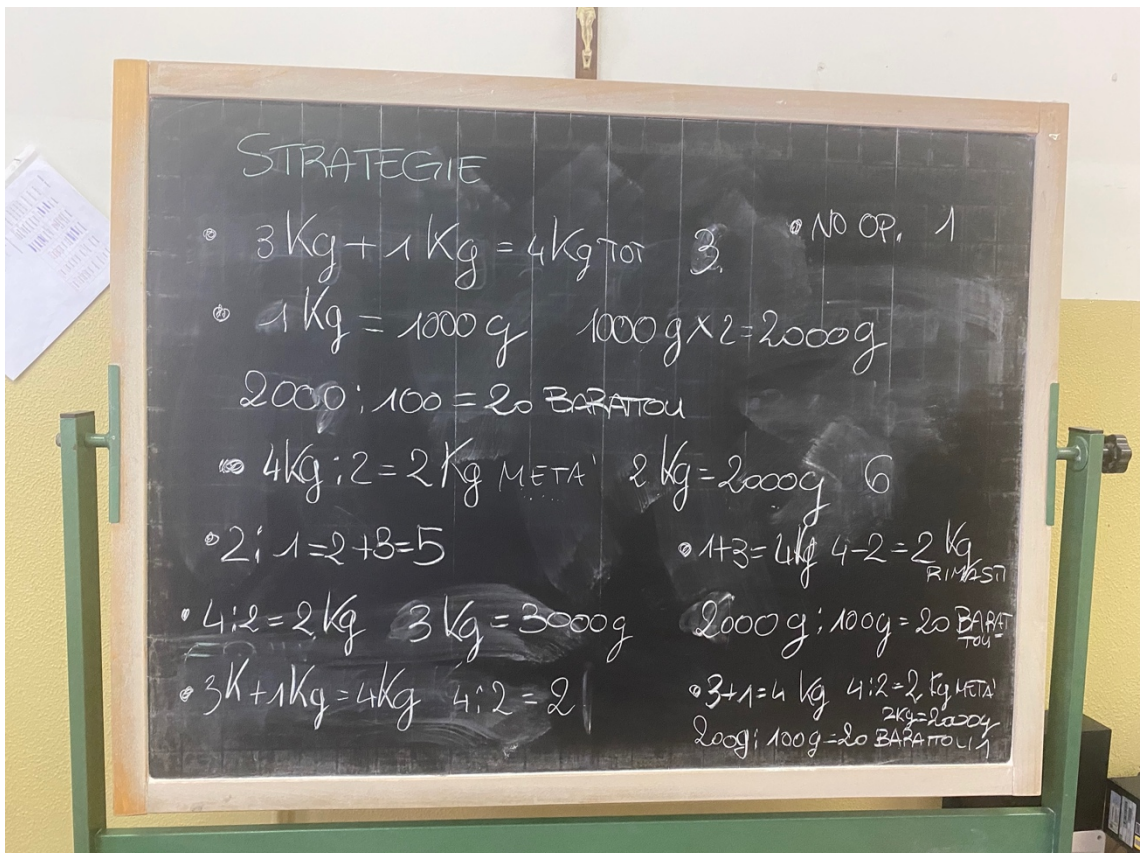 STRATEGIE
• 3Kg + 1Kg = 4Kg TOT 3
• NO OP. 1
• 1Kg = 1000g 1000g x 2 = 2000g
2000 : 100 = 20 BARATTOLI
• 4Kg : 2 = 2Kg METÀ 2Kg = 2000g 6
• 2 : 1 = 2 + 3 = 5
• 1+3 = 4Kg 4-2 = 2Kg
RIMASTI
• 4:2 = 2Kg 3Kg = 3000g
2000g : 100g = 20 BARAT
TOLI
• 3K + 1Kg = 4Kg 4 : 2 = 2
• 3+1 = 4 Kg 4:2 = 2 Kg METÀ
2Kg = 2000g
200g : 100g = 20 BARATTOLI 1